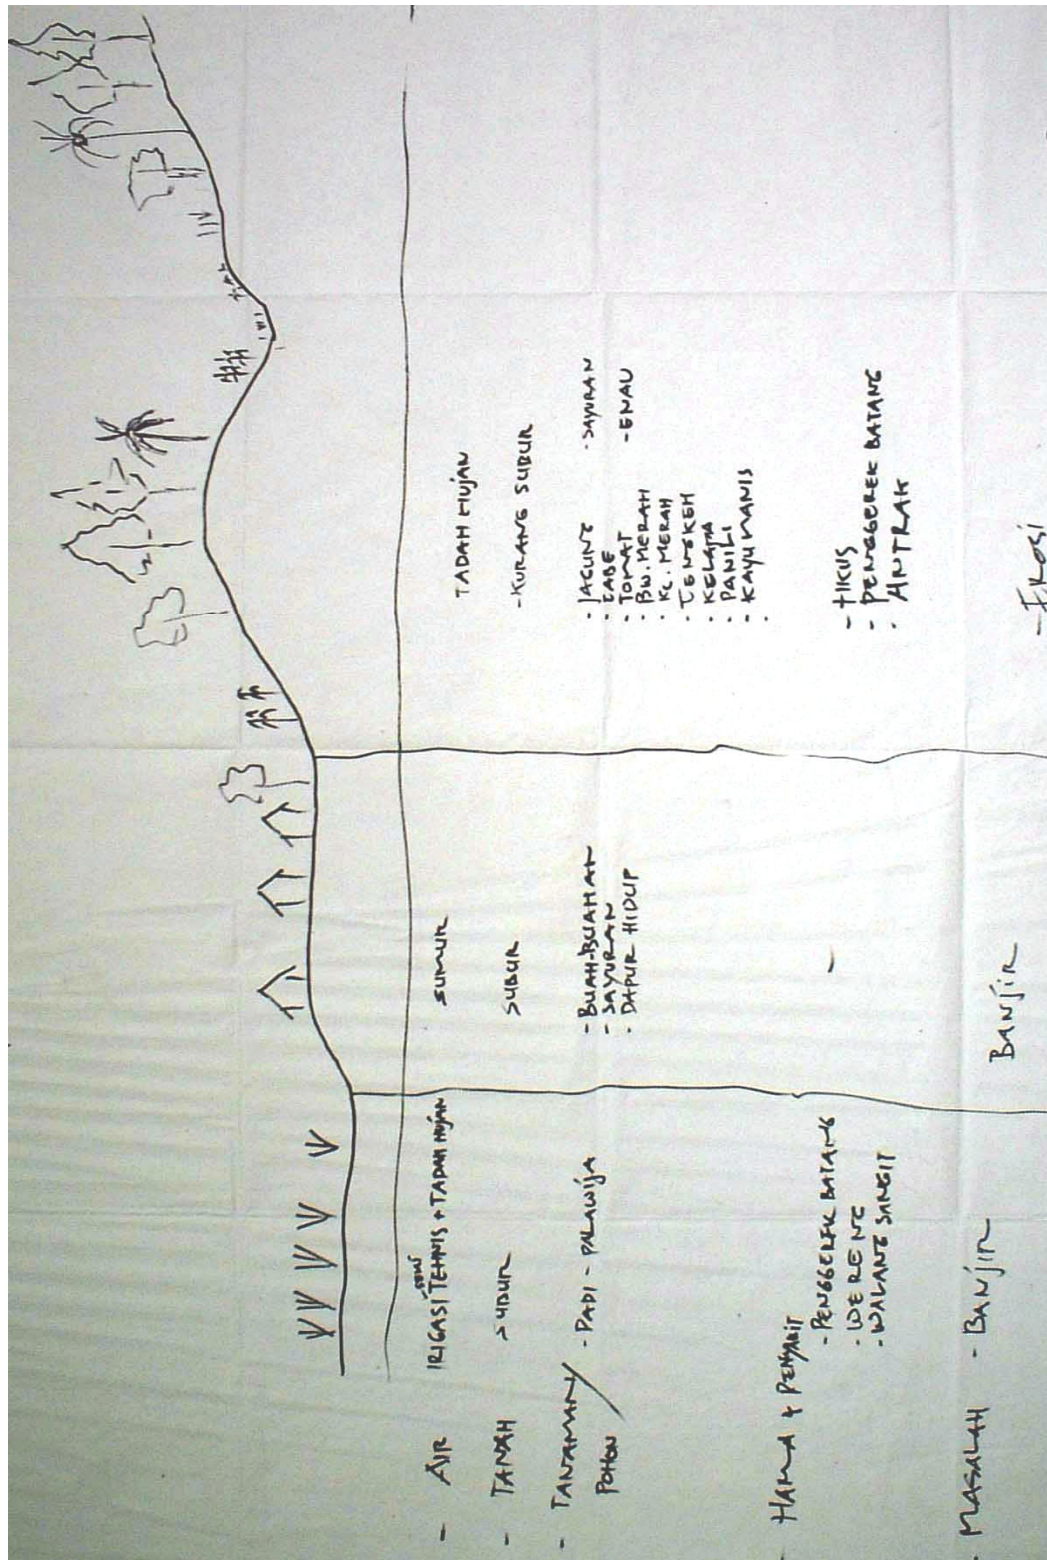 - AIR
IRIGASI SEMI TEHNIS + TADAH HUJAN
SUMUR
TADAH HUJAN
- TANAH
SUBUR
SUBUR
- KURANG SUBUR
- TANAMAN/
POHON
- PADI - PALAWIJA
- BUAH-BUAHAN
- SAYURAN
- DAPUR HIDUP
- JAGUNG
- CABE
- TOMAT
- BW. MERAH
- KC. MERAH
- CENGKEH
- KELAPA
- PANILI
- KAYU MANIS
- SAYURAN
- ENAU
- HAMA & PENYAKIT
- PENGGEREK BATANG
- WERENG
- WALANG SANGIT
-
- TIKUS
- PENGGEREK BATANG
- ANTRAK
- MASALAH
- BANJIR
BANJIR
- EROSI